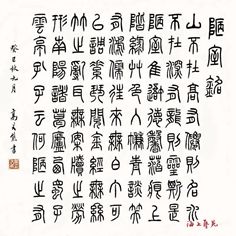 陋室銘
山不在高有仙則名水
不在深有龍則靈斯是
陋室惟吾德馨苔痕上
階綠草色入簾青談笑
有鴻儒往來無白丁可
以調素琴閱金經無絲
竹之亂耳無案牘之勞
形南陽諸葛廬西蜀子
雲亭孔子云何陋之有
癸巳秋九月
高書